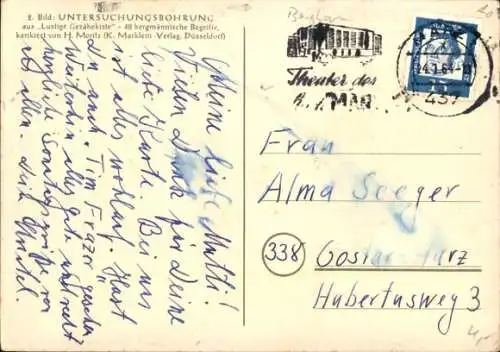 8. Bild: UNTERSUCHUNGSBOHRUNG
aus „Lustige Gezähekiste" - 48 bergmännische Begriffe,
karikiert von H. Moritz (K. Marklein - Verlag, Düsseldorf)
Meine liebe Mutti!
Vielen Dank für Deine
liebe Karte. Bei uns
ist alles wohlauf. Hast
Du auch „Tim Frazer" gesehen
Weiterhin alles gute und recht
herzliche Sonntagsgrüße von
uns allen. Deine
Theater des
MARL
4.1.64
437
15
Frau
Alma Seeger
338
Goslar-Harz
Hubertusweg 3